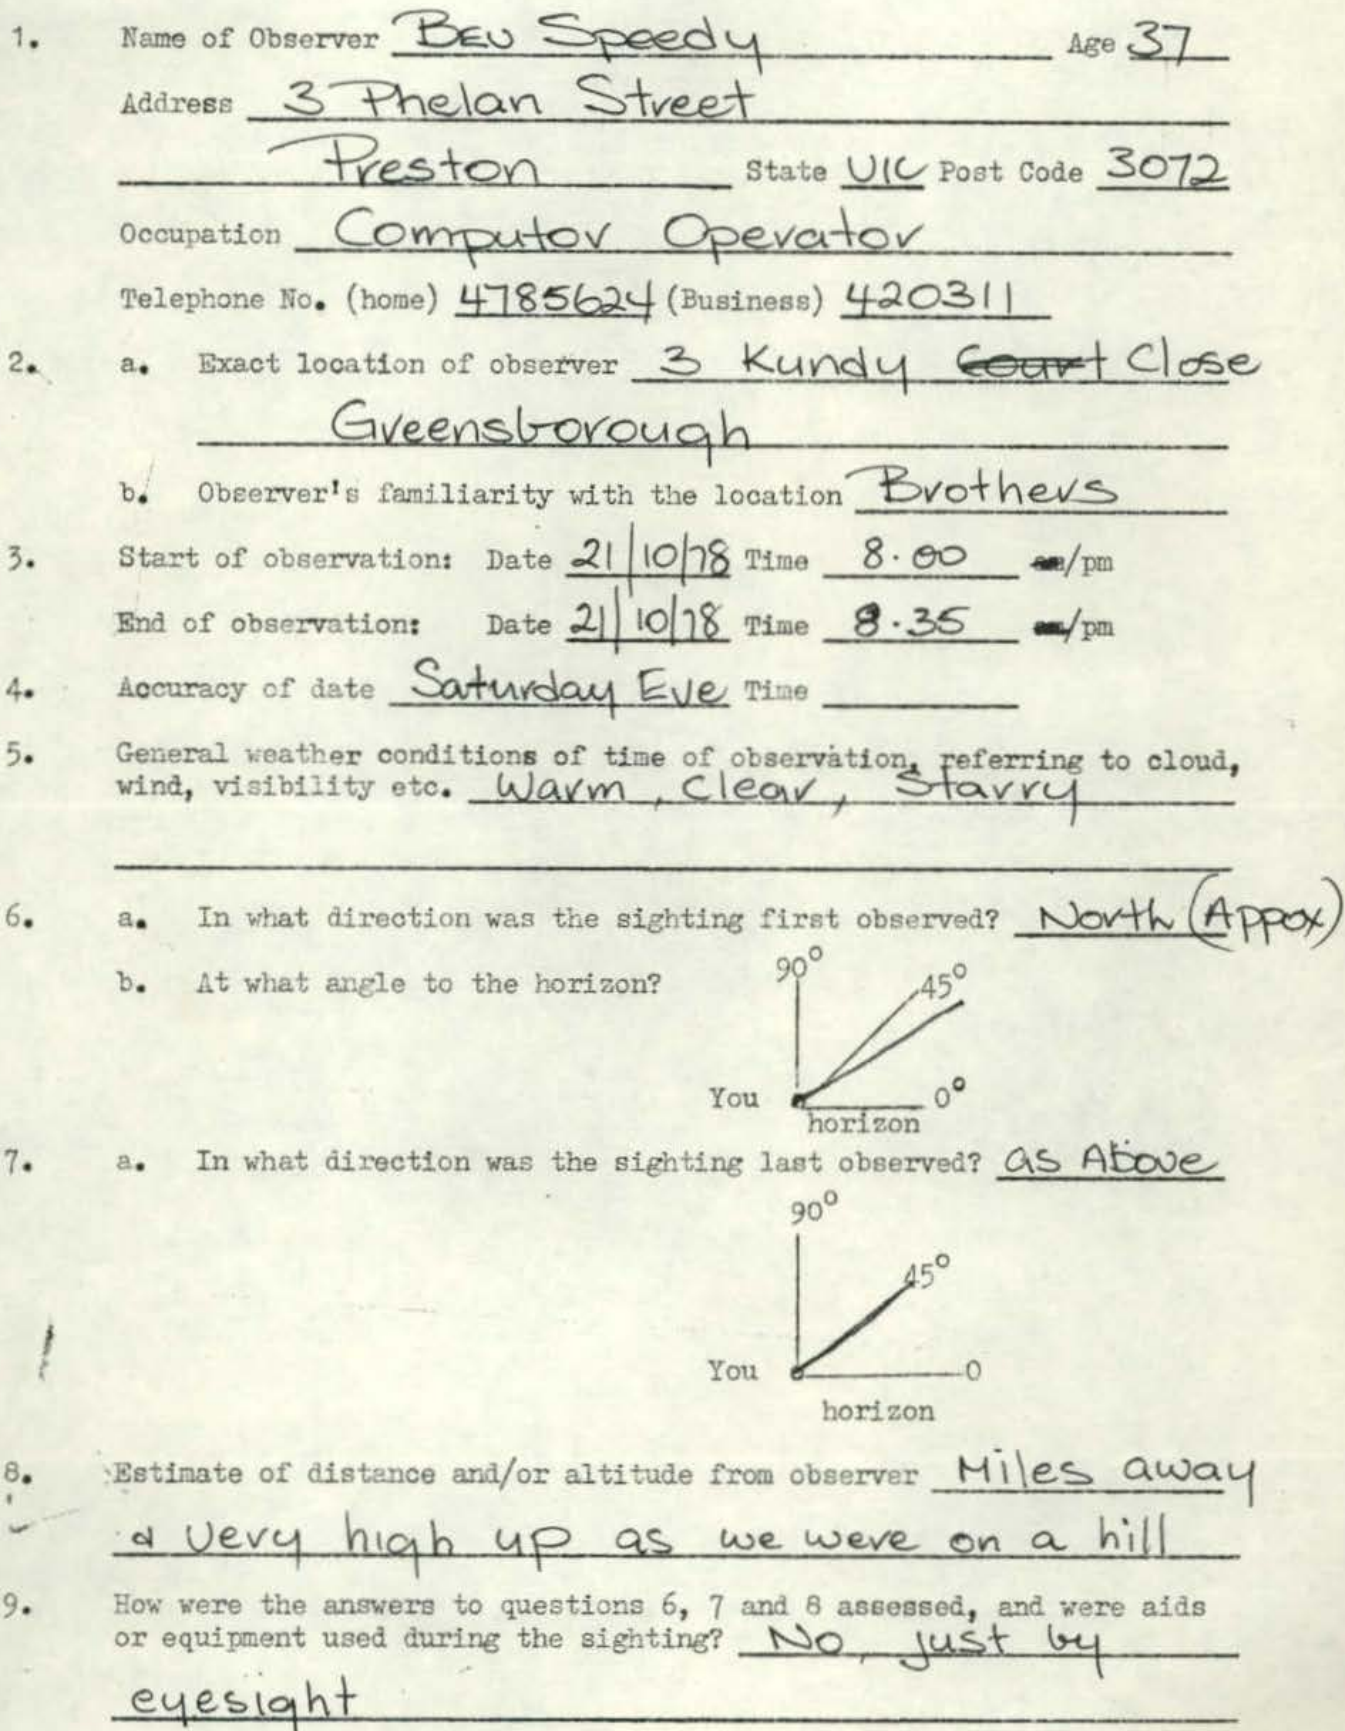 1. Name of Observer Bev Speedy Age 37
Address 3 Phelan Street
Preston State VIC Post Code 3072
Occupation Computor Operator
Telephone No. (home) 4785624 (Business) 420311
2. a. Exact location of observer 3 Kundy Court Close
Greensborough
b. Observer's familiarity with the location Brothers
3. Start of observation: Date 21/10/78 Time 8.00 am/pm
End of observation: Date 21/10/78 Time 8.35 am/pm
4. Accuracy of date Saturday Eve Time
5. General weather conditions of time of observation, referring to cloud,
wind, visibility etc. Warm, Clear, Starry
6. a. In what direction was the sighting first observed? North (Appox)
b. At what angle to the horizon?
90°
45°
You 0°
horizon
7. a. In what direction was the sighting last observed? as Above
90°
45°
You 0
horizon
8. Estimate of distance and/or altitude from observer Miles away
& very high up as we were on a hill
9. How were the answers to questions 6, 7 and 8 assessed, and were aids
or equipment used during the sighting? No, just by
eyesight